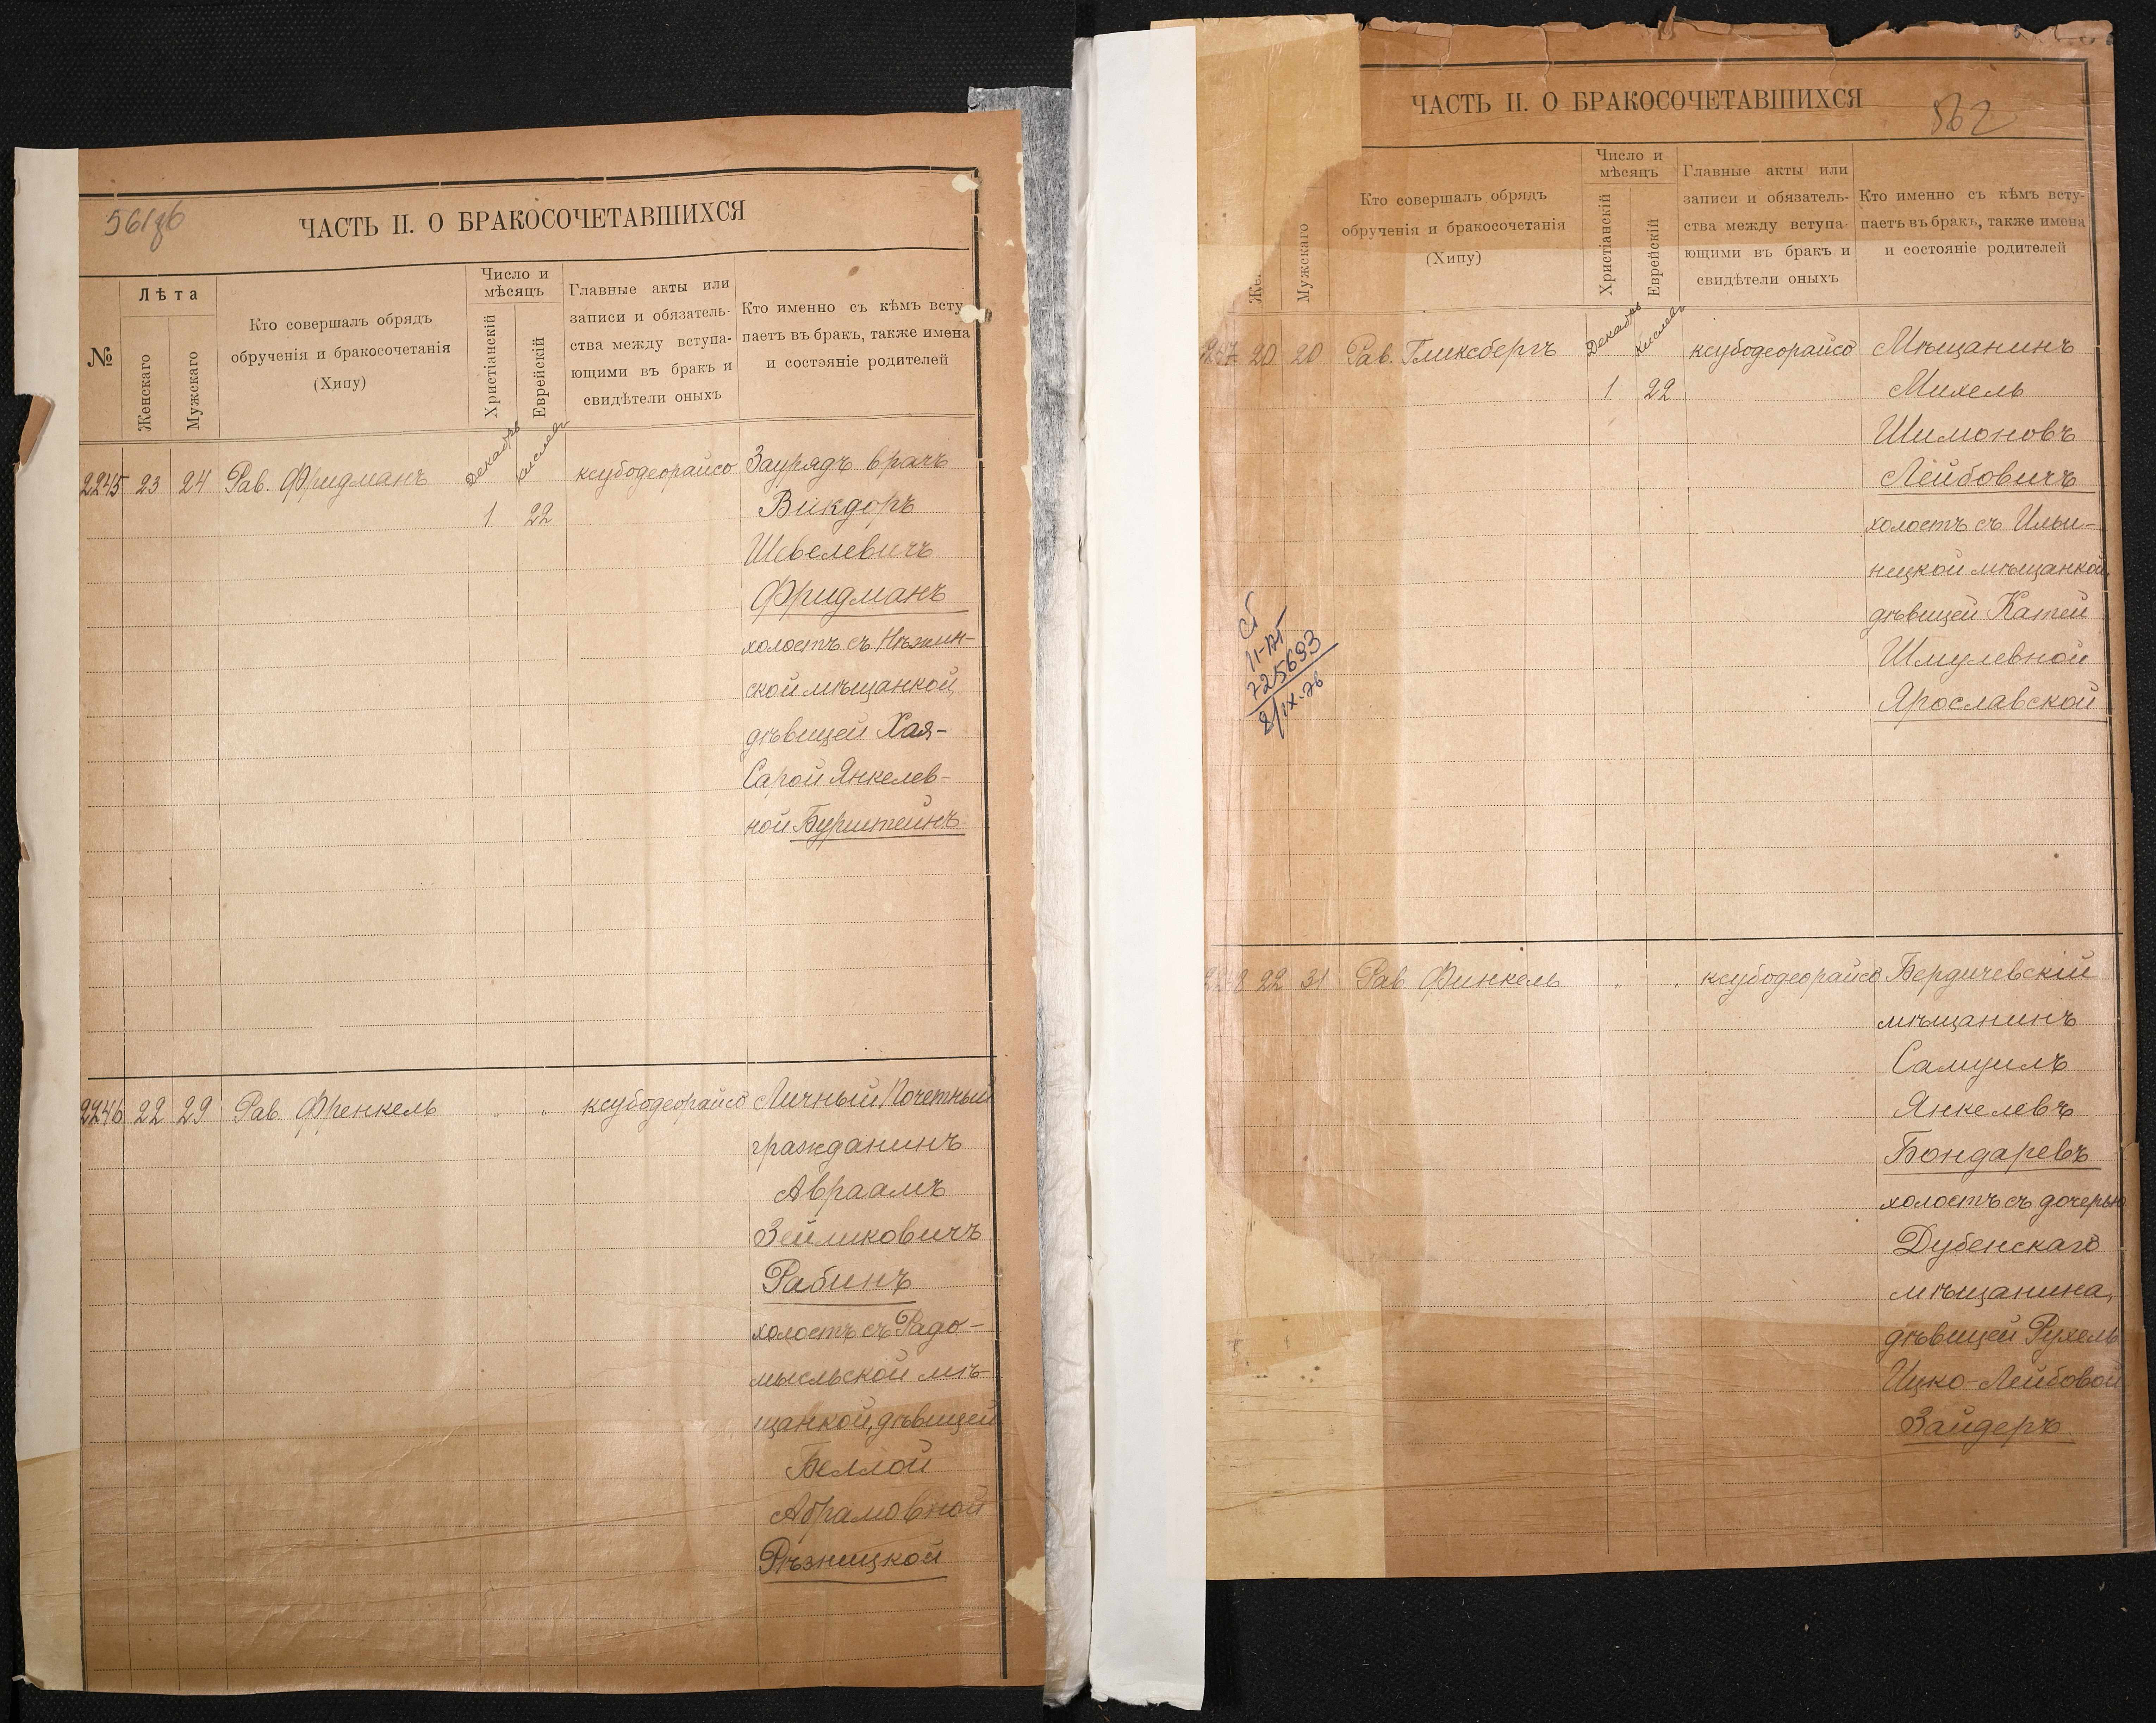 561об
ЧАСТЬ II. О БРАКОСОЧЕТАВШИХСЯ
№
Лѣта
Женскаго
Мужскаго
Кто совершалъ обрядъ
обрученія и бракосочетанія
(Хипу)
Число и
мѣсяцъ
Христіанскій
Еврейскій
Главные акты или
записи и обязатель-
ства между вступа-
ющими въ бракъ и
свидѣтели оныхъ
Кто именно съ кѣмъ всту
паетъ въ бракъ, также имена
и состояніе родителей
2245 23 24 Рав. Фридманъ Декабрь Кислевъ ксубодеорайсо Заурядъ врачъ
1 22 Викдоръ
Шевелевичъ
Фридманъ
холостъ съ Нѣжин-
ской мѣщанкой,
дѣвицей Хая-
Сарой Янкелев-
ной Бурштейнъ
2246 22 29 Рав. Френкель " " ксубодеорайсо Личный Почетный
гражданинъ
Авраамъ
Зейликовичъ
Рабинъ
холостъ съ Радо-
мысльской мѣ-
щанкой, дѣвицей
Беллой
Абрамовной
Рѣзницкой
ЧАСТЬ II. О БРАКОСОЧЕТАВШИХСЯ
562
Же
Мужскаго
Кто совершалъ обрядъ
обрученія и бракосочетанія
(Хипу)
Число и
мѣсяцъ
Христіанскій
Еврейскій
Главные акты или
записи и обязатель-
ства между вступа-
ющими въ бракъ и
свидѣтели оныхъ
Кто именно съ кѣмъ всту-
паетъ въ бракъ, также имена
и состояніе родителей
2247 20 20 Рав. Гликсбергъ Декабрь Кислевъ ксубодеорайсо Мѣщанинъ
1 22 Михель
Шимоновъ
Лейбовичъ
холостъ съ Ильи-
нецкой мѣщанкой,
дѣвицей Катей
Шмулевной
Ярославской
725693
2/IX-76
2248 22 31 Рав. Финкель " " ксубодеорайсо Бердичевскій
мѣщанинъ
Самуилъ
Янкелевъ
Бондаревъ
холостъ съ дочерью
Дубенскаго
мѣщанина,
дѣвицей Рухель
Ицко-Лейбовой
Зайдеръ